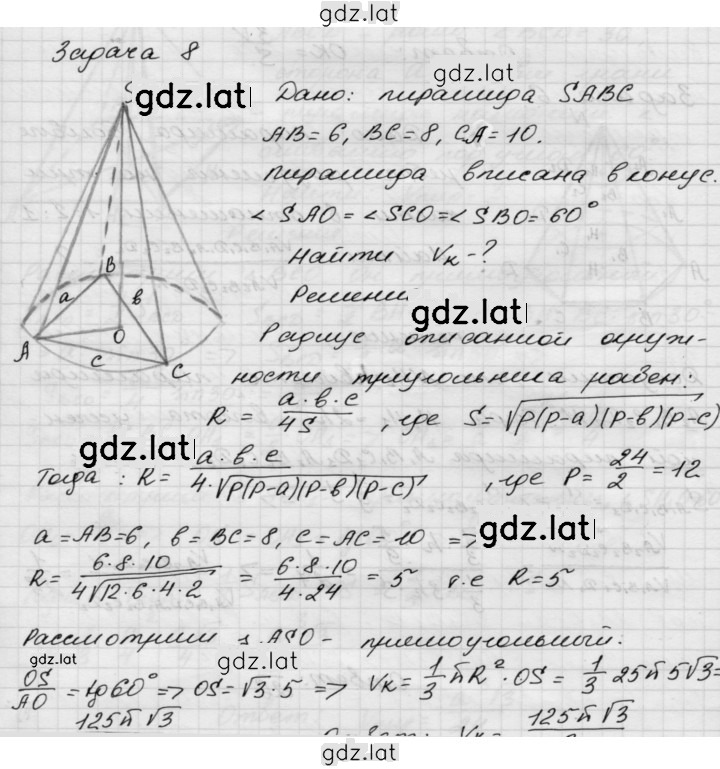 gdz.lat
Задача 8
gdz.lat
S
gdz.lat
Дано: пирамида SABC
AB=6, BC=8, CA=10.
пирамида вписана в конус.
∠SAO=∠SCO=∠SBO=60°
Найти Vк-?
Решени
gdz.lat
B
a в
A O
c C
Радиус описанной окруж-
ности треугольника равен:
R = a·в·c / 4S, где S=√p(p-a)(p-в)(p-c)
gdz.lat
Тогда: R= a·в·c / 4·√p(p-a)(p-в)(p-c), где p= 24/2 =12
a=AB=6, в=BC=8, c=AC=10 =>
gdz.lat
R= 6·8·10 / 4√12·6·4·2 = 6·8·10 / 4·24 = 5 т.е R=5
Рассмотрим ASO- прямоугольный:
gdz.lat
gdz.lat
gdz.lat
OS/AO = tg60° => OS=√3·5 => Vк= 1/3 πR²·OS = 1/3 25π5√3=
125π√3
Vк= 125π√3
gdz.lat